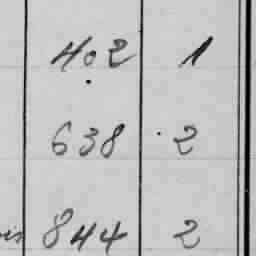 402 1
638 2
844 2